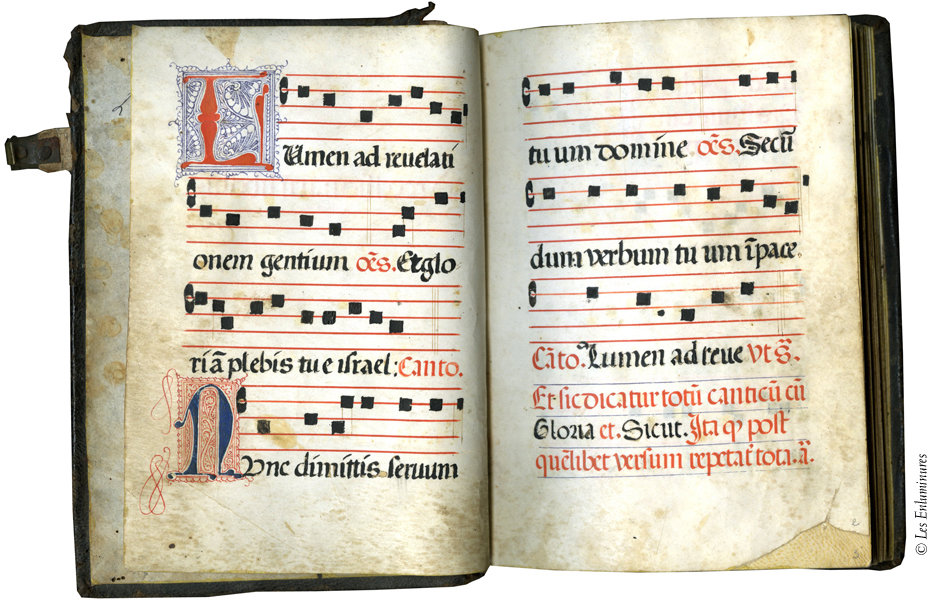 LUmen ad reuelati
onem gentium oēs. Et glo
riā plebis tu e israel: Canto.
NVnc dimittis seruum
tu um domine oēs. Secū
dum verbum tu um ī pace
Cāto. Lumen ad reue Vt s̄.
Et sic dicatur totū canticū cū
Gloria et. Sicut. Ita q̄ post
quēlibet versum repetat̄ tota. ā.
© Les Enluminures